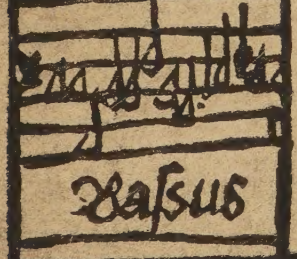 Baſsus